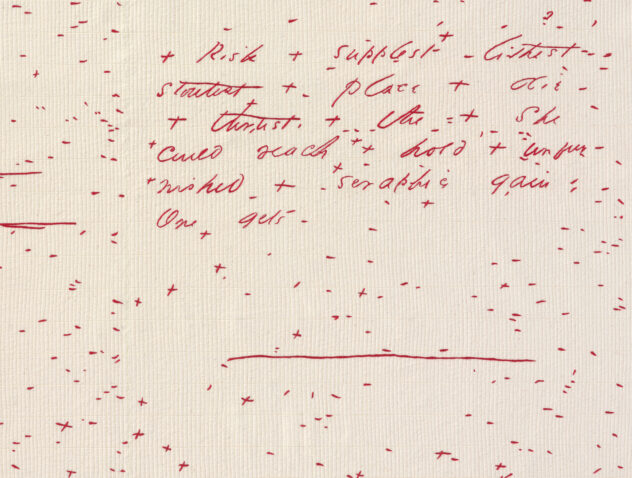 + Risk + supplest + - lithest -
stoutest + place +
+ thrust. + the - + She
+ could reach + hold + unfur-
+ nished + seraphic gain ;
One gets -